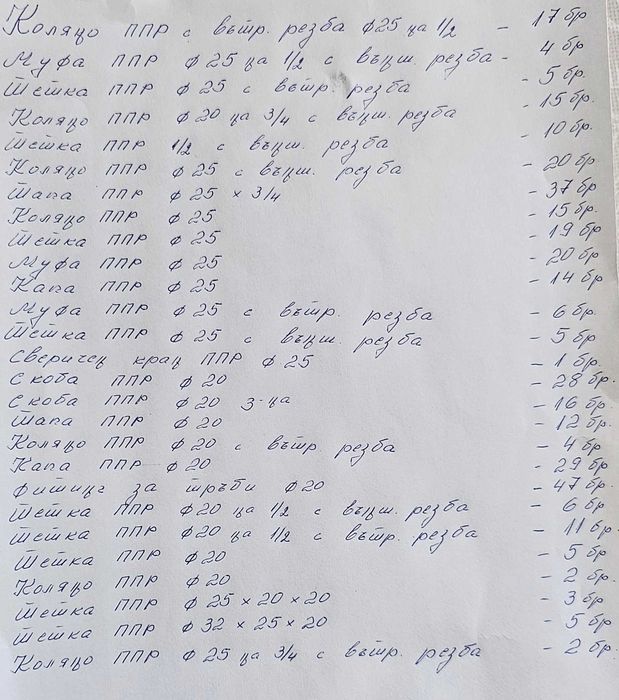 Коляно ППР с вътр. резба ф25 на 1/2 - 17 бр
Муфа ППР ф25 на 1/2 с външ. резба - 4 бр
Тетка ППР ф25 с вътр. резба - 5 бр.
Коляно ППР ф20 на 3/4 с външ. резба - 15 бр.
Тетка ППР 1/2 с външ. резба - 10 бр.
Коляно ППР ф25 с външ. резба - 20 бр
Тапа ППР ф25 x 3/4 - 37 бр
Коляно ППР ф25 - 15 бр.
Тетка ППР ф25 - 19 бр
Муфа ППР ф25 - 20 бр
Капа ППР ф25 - 14 бр
Муфа ППР ф25 с вътр. резба - 6 бр.
Тетка ППР ф25 с външ. резба - 5 бр
Сферичен кран ППР ф25 - 1 бр.
Скоба ППР ф20 - 28 бр.
Скоба ППР ф20 3-на - 16 бр.
Тапа ППР ф20 - 12 бр.
Коляно ППР ф20 с вътр. резба - 4 бр.
Капа ППР ф20 - 29 бр
Фитинг за тръби ф20 - 47 бр.
Тетка ППР ф20 на 1/2 с външ. резба - 6 бр
Тетка ППР ф20 на 1/2 с вътр. резба - 11 бр.
Тетка ППР ф20 - 5 бр
Коляно ППР ф20 - 2 бр.
Тетка ППР ф25 x 20 x 20 - 3 бр
Тетка ППР ф32 x 25 x 20 - 5 бр
Коляно ППР ф25 на 3/4 с вътр. резба - 2 бр.